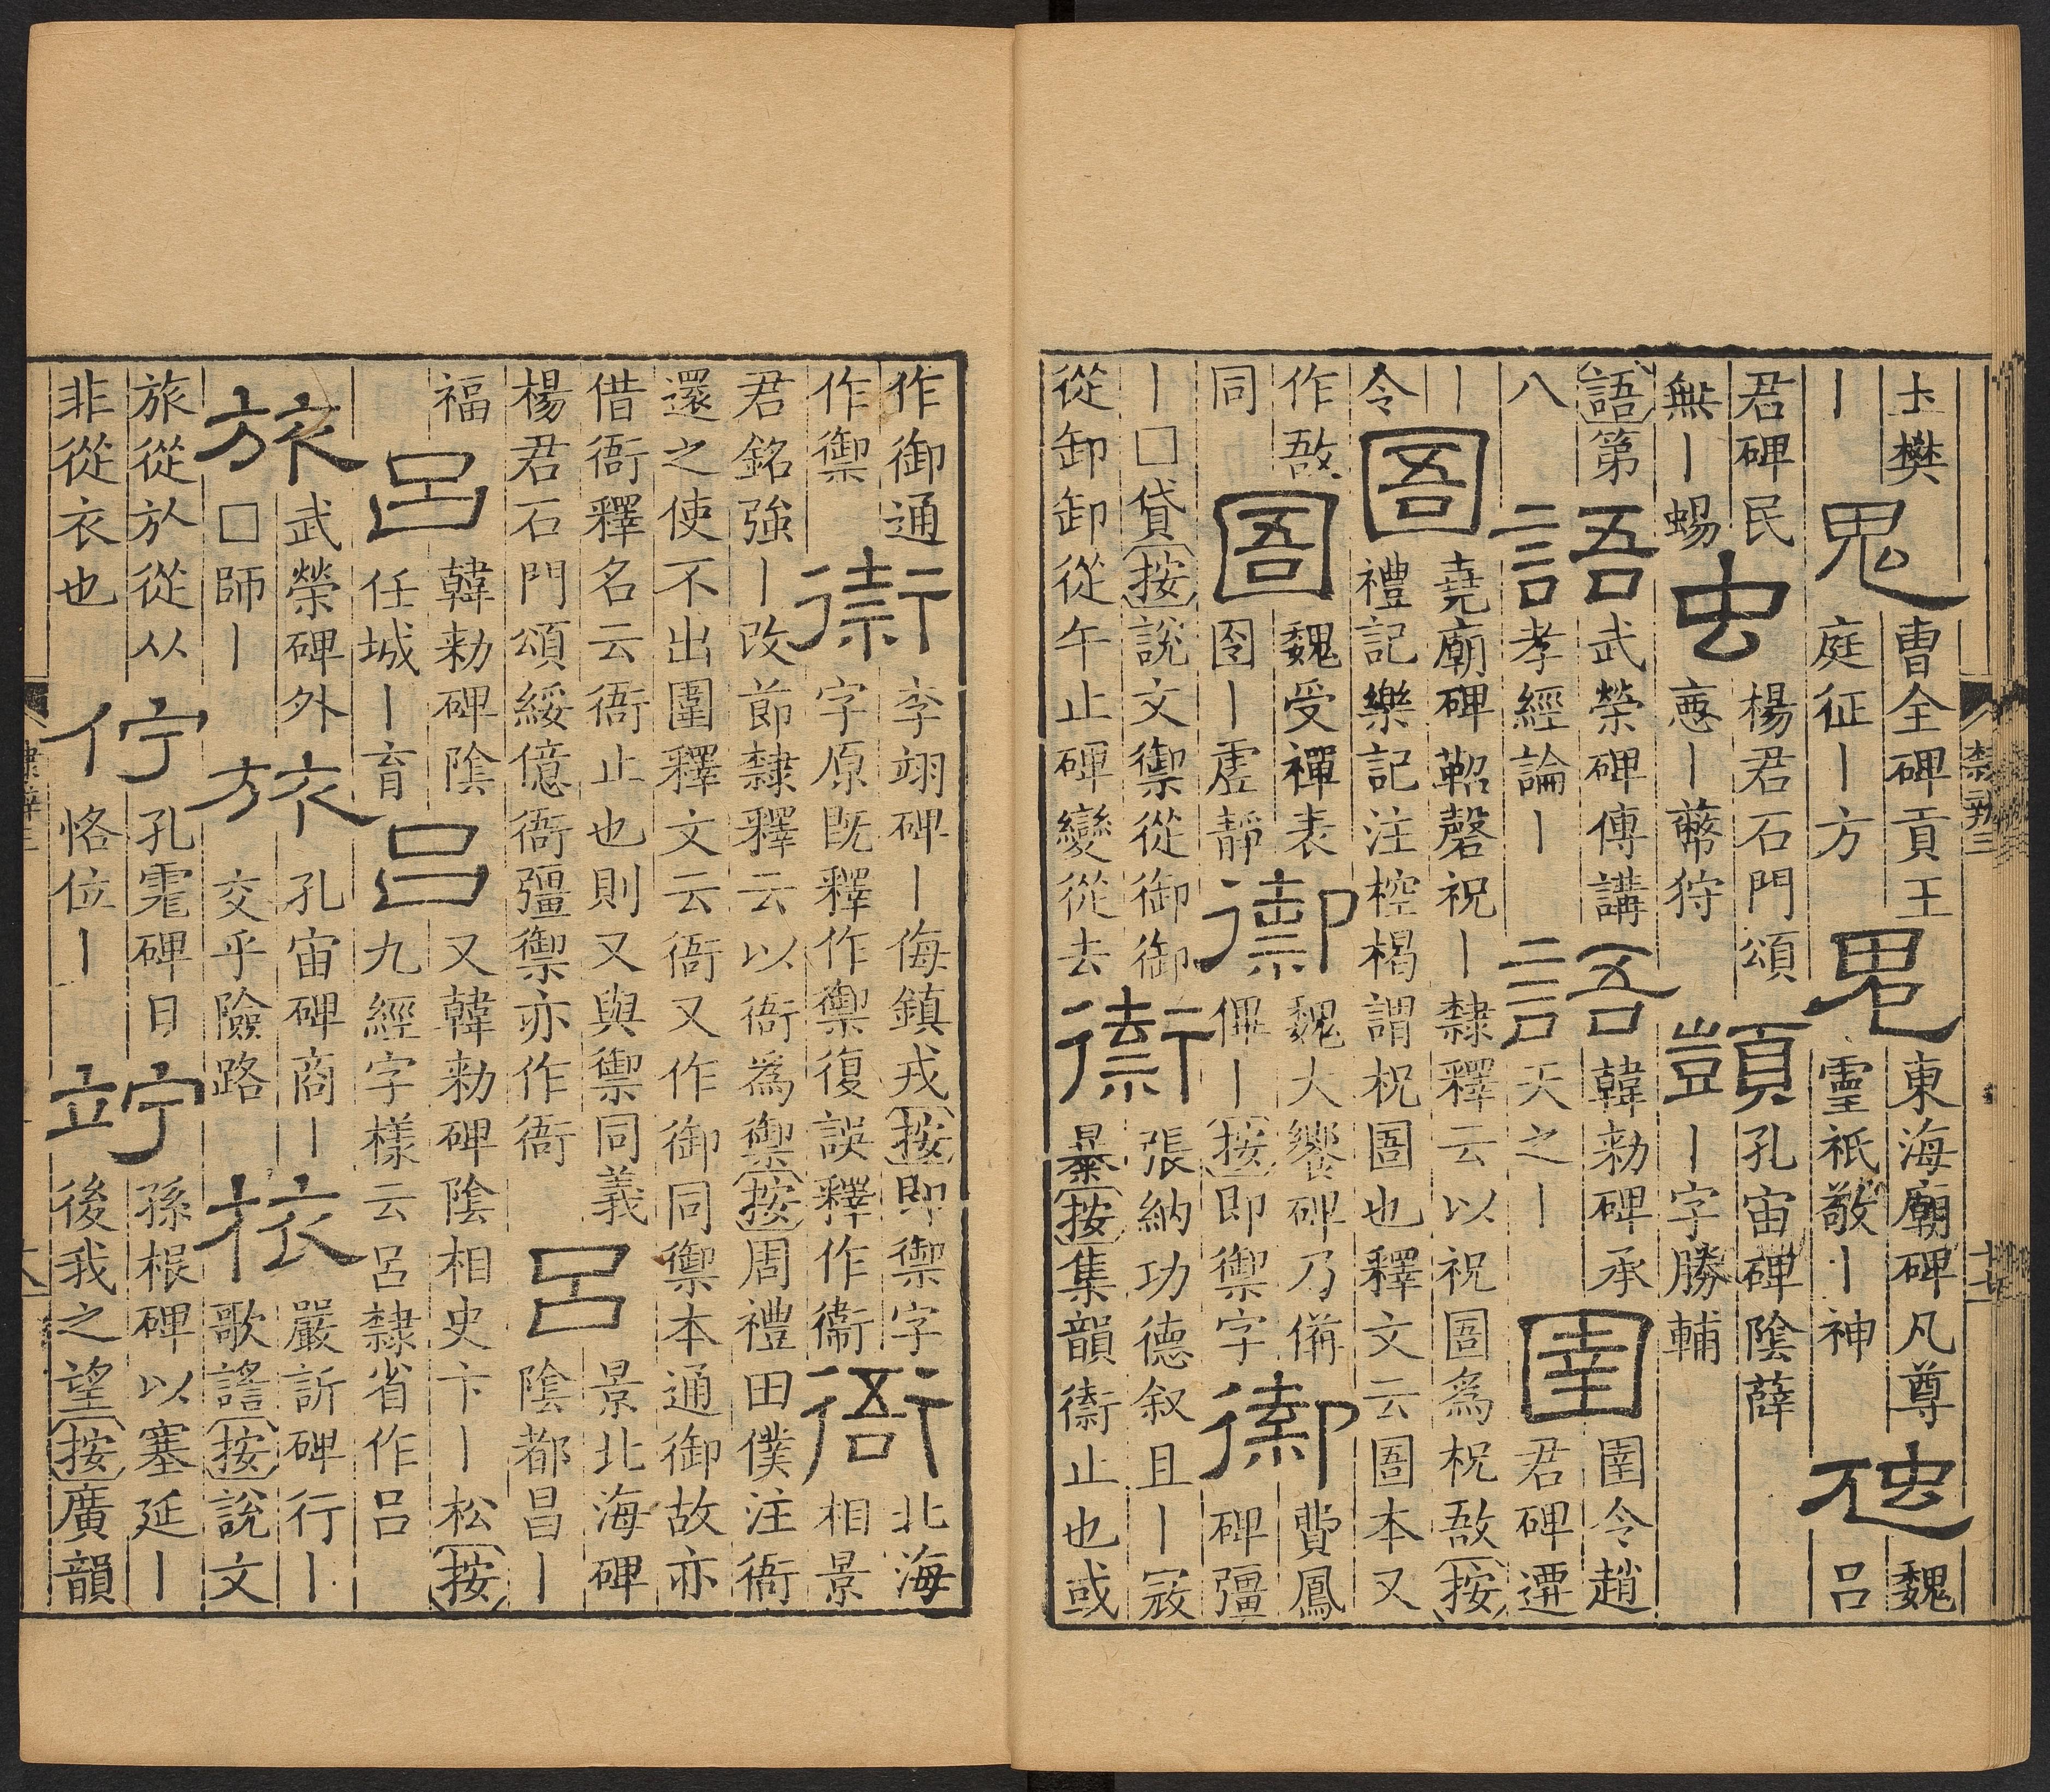 士樊丨 鬼 曹全碑貢王庭征丨方 鬼 東海廟碑凡尊靈祇敬丨神 魏呂
君碑民無丨蜴 虫 楊君石門頌惡丨蔽狩 顗 孔宙碑陰薛丨字勝輔
語第八 語 武榮碑傳講孝經論丨 語 韓勑碑承天之丨 圉 圉令趙君碑遷
丨令 圄 堯廟碑鞀磬祝丨隸釋云以祝圄爲柷敔按禮記樂記注椌楬謂柷圄也釋文云圄本又
作敔同 圄 魏受禪表囹丨虛靜 禦 魏大饗碑乃備俾丨按即禦字 禦 費鳳碑彊
丨□貸按說文禦從御御從卸卸從午止碑變從去 衘 張納功德叙且丨寇暴按集韻衘止也或
隸辨三
十七
作御通作禦 衘 李翊碑丨侮鎮戎按即禦字字原既釋作禦復誤釋作衞 衙 北海相景
君銘強丨改節隸釋云以衙爲禦按周禮田僕注衙還之使不出圍釋文云衙又作御同禦本通御故亦
借衙釋名云衙止也則又與禦同義楊君石門頌綏億衙彊禦亦作衙 呂 景北海碑陰都昌丨
福 呂 韓勑碑陰任城丨育 呂 又韓勑碑陰相史卞丨松按九經字樣云呂隸省作吕
旅 武榮碑外□師丨 旅 孔宙碑商丨交乎險路 旅 嚴訢碑行丨歌謠按說文
旅從㫃從从非從衣也 佇 孔霮碑日恪位丨 竚 孫根碑以塞延丨後我之望按廣韻